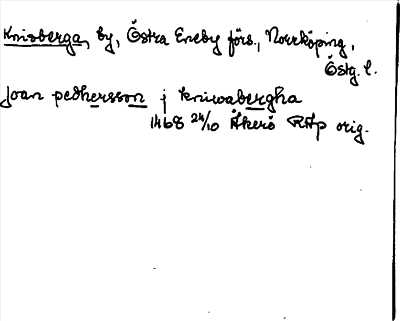 Knisberga, by, Östra Eneby förs., Norrköping,
Östg. l.
Joan pedhersson j kniwabergha
1468 24/10 Åkerö RAp orig.